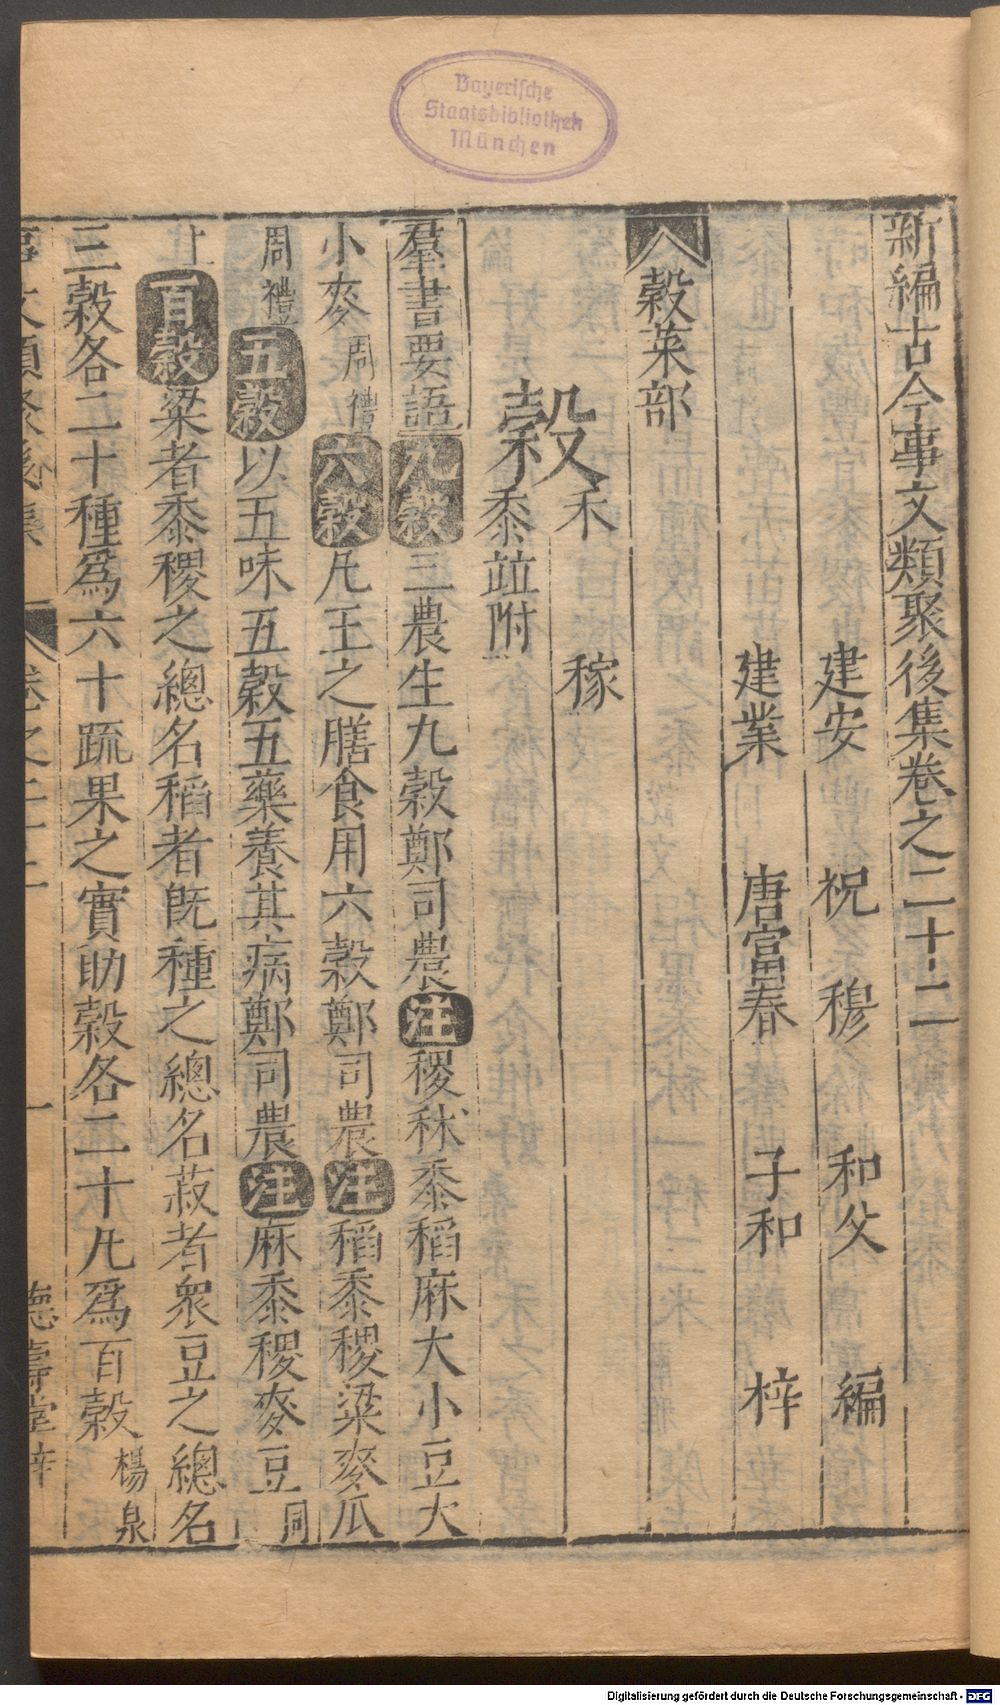 Bayerische
Staatsbibliothek
München
新編古今事文類聚後集卷之二十二
建安 祝 穆 和父 編
建業 唐富春 子和 梓
穀菜部
穀 禾 稼
黍並附
羣書要語 九穀 三農生九穀鄭司農注稷秫黍稻麻大小豆大
小麥周禮 六穀 凡王之膳食用六穀鄭司農注稻黍稷粱麥瓜
周禮 五穀 以五味五穀五藥養其病鄭司農注麻黍稷麥豆同
上 百穀 粱者黍稷之總名稻者旣種之總名菽者衆豆之總名
三穀各二十種爲六十疏果之實助穀各二十凡爲百穀楊泉
事文類聚後集 卷之二十二 一 德壽堂梓
Digitalisierung gefördert durch die Deutsche Forschungsgemeinschaft - DFG